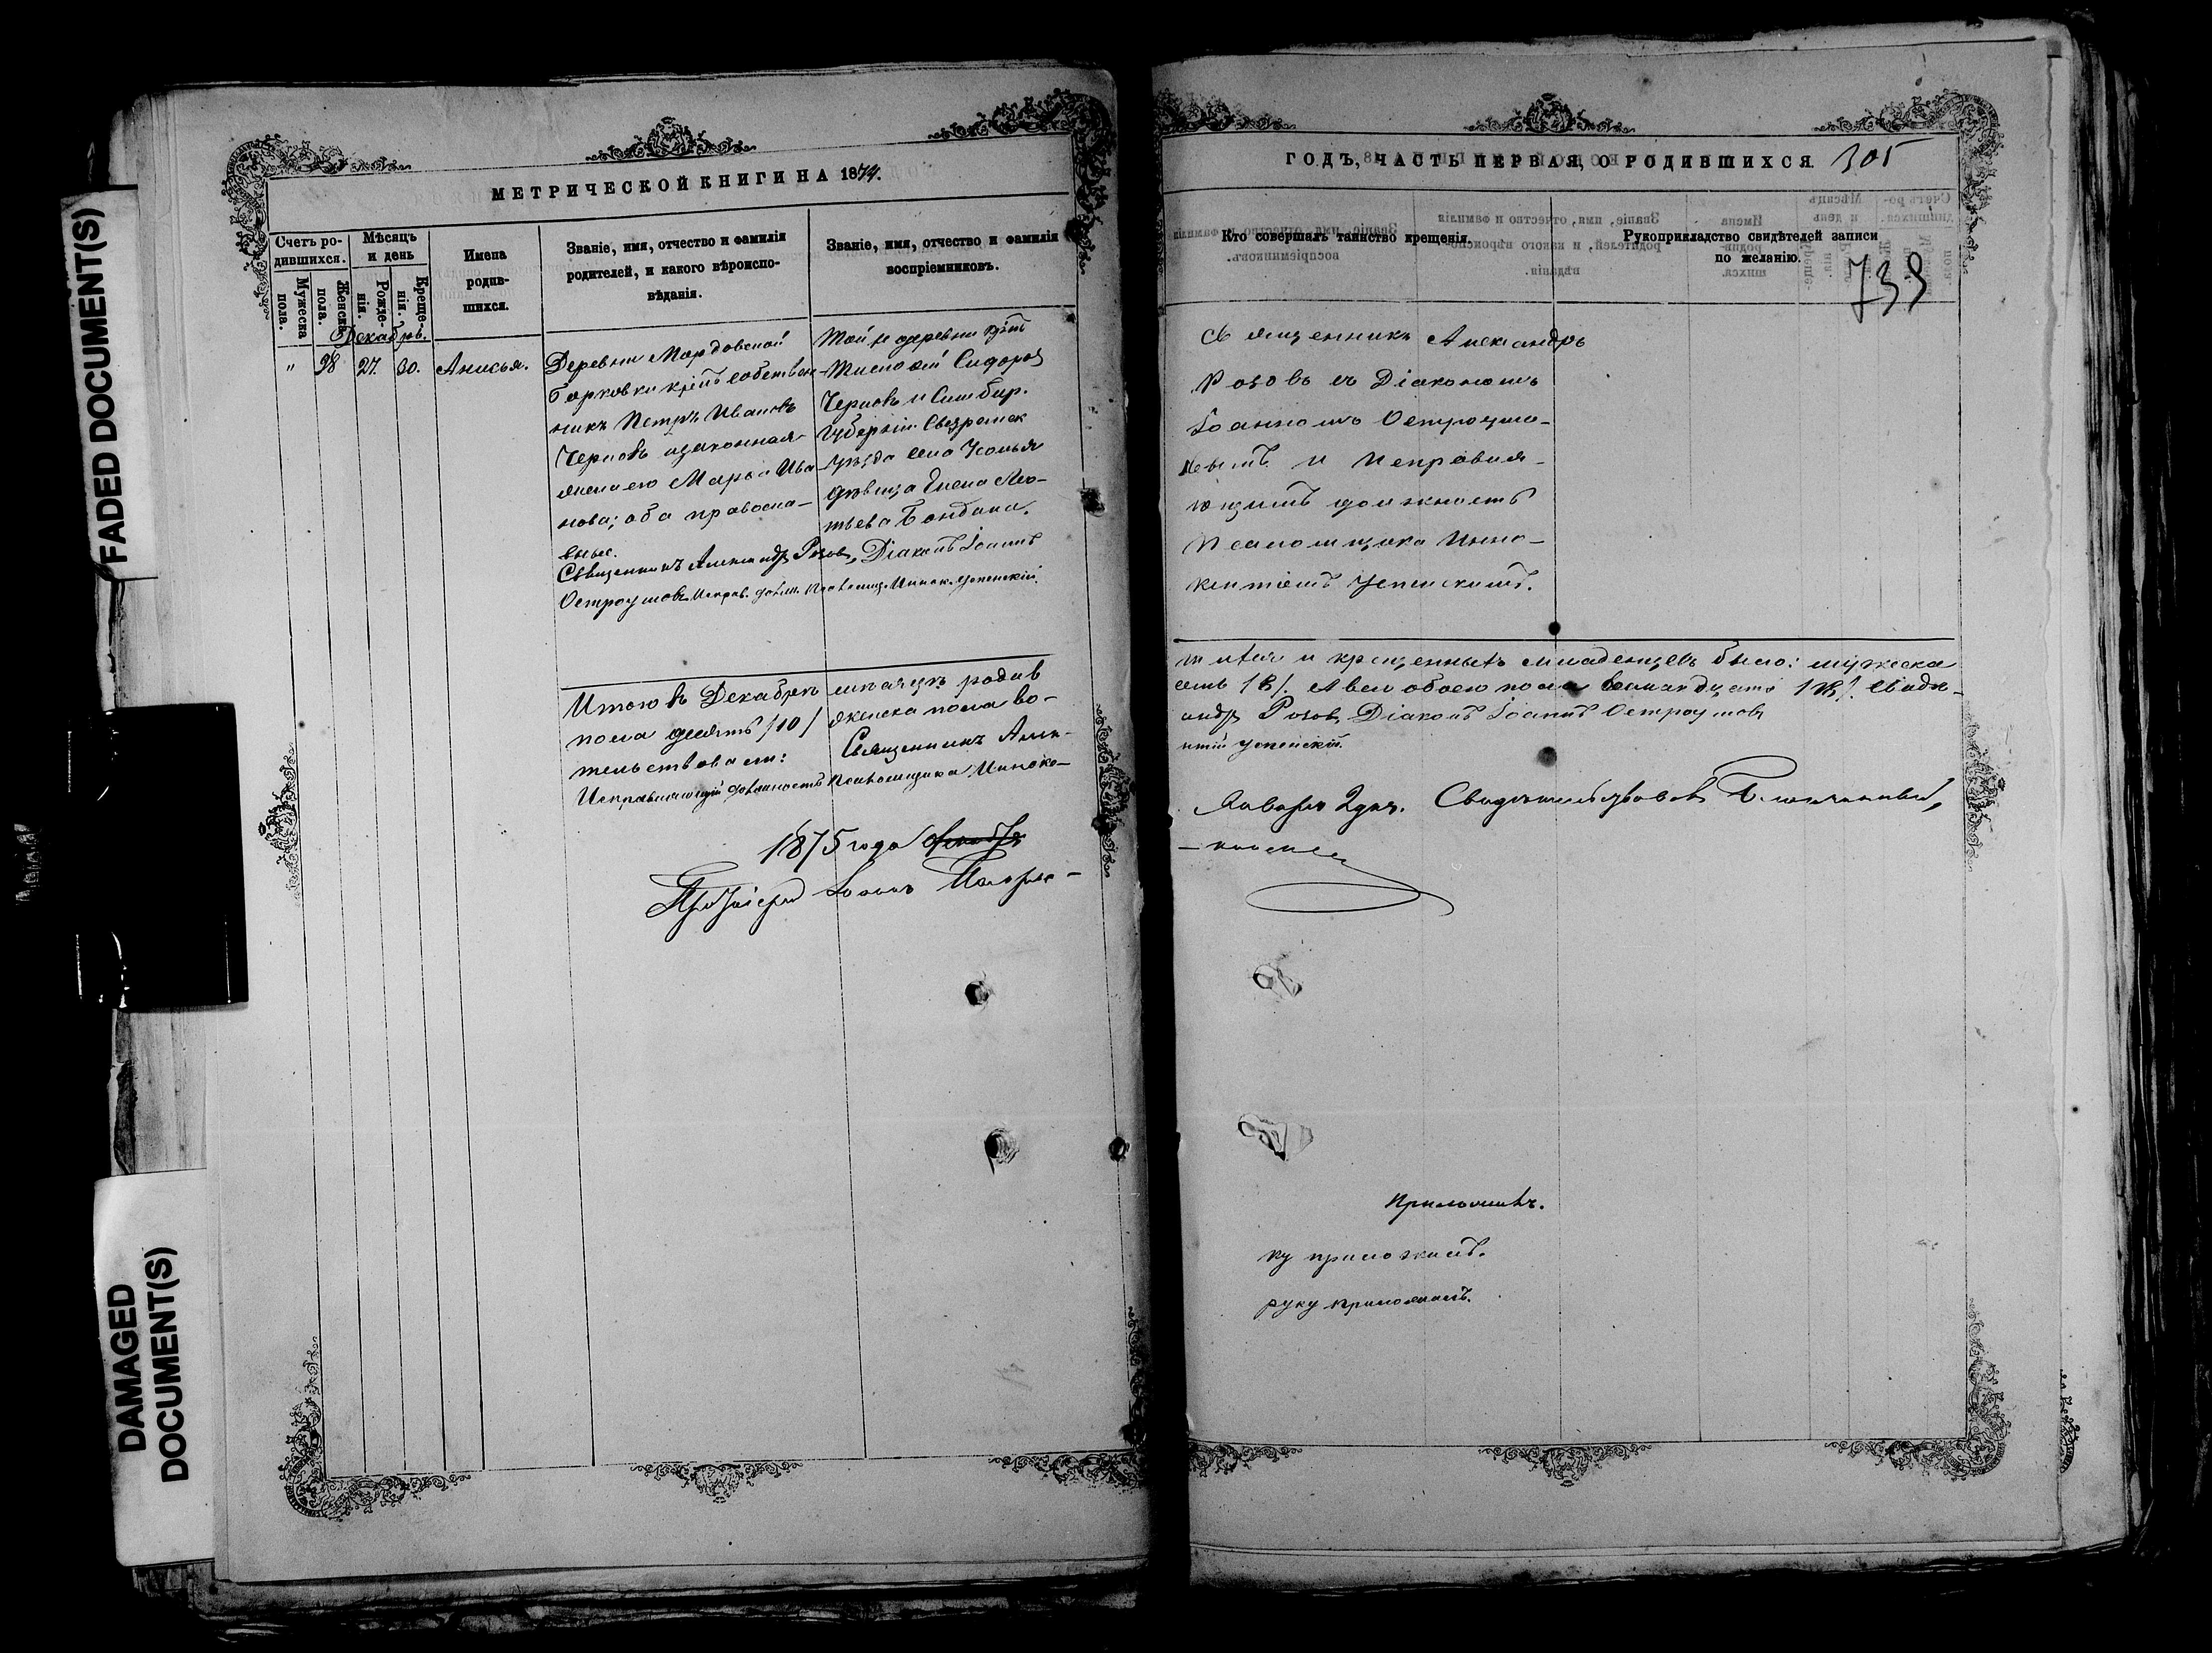 FADED DOCUMENT(S)
DAMAGED
DOCUMENT(S)
МЕТРИЧЕСКОЙ КНИГИ НА 1874.
Счетъ ро-
дившихся.
Мужеска
пола.
Женска
пола.
Мѣсяцъ
и день
Рожде-
нія.
Креще-
нія.
Имена
родив-
шихся.
Званіе, имя, отчество и фамилія
родителей, и какого вѣроиспо-
вѣданія.
Званіе, имя, отчество и фамилія
воспріемниковъ.
Декабрь.
" 38 27. 30. Анисья.
Деревни Мордовской
Борковки крѣст собствен
никъ Петръ Ивановъ
Черновъ и законная
жена его Марья Ива
нова; оба правосла-
вные.
Священникъ Александръ Розовъ, Діаконъ Іоаннъ
Остроумовъ Исправ. долж. Псаломщ. Инок. Успенскій.
Той же деревни крѣст
Сидоровъ
Черновъ и Симбир.
Губерніи Сызранск
уѣзда села Усолья
дѣвица Елена
Итого въ Декабрѣ мѣсяцѣ родив
пола десять /10/ женска пола во-
тельствовали: Священникъ Алек-
Исправляющій должность Псаломщика Иноке-
1875 года
Протоіерей Іоаннъ
ГОДЪ, ЧАСТЬ ПЕРВАЯ, О РОДИВШИХСЯ. 305
Кто совершалъ таинство крещенія.
Рукоприкладство свидѣтелей записи
по желанію.
739
Священникъ Александръ
Розовъ съ Діакономъ
Іоанномъ Остроумо-
вымъ и исправля-
ющимъ должность
Псаломщика Инно-
кентіемъ Успенскимъ.
шихся и крещенныхъ младенцевъ было: мужеска
семь /8/. А всего обоего пола восемнадцать /18/. Свидѣ-
андръ Розовъ, Діаконъ Іоаннъ Остроумовъ
нтій Успенскій.
Января 2 дня. Свидѣтельствовалъ
приложилъ.
ку приложилъ.
руку приложилъ.